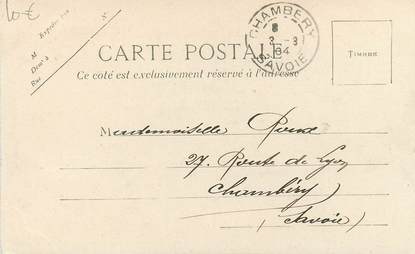 10€
Expéditeur
M
Dem^t à
Rue
CHAMBERY
8
3 -3
04
SAVOIE
CARTE POSTALE
Ce côté est exclusivement réservé à l'adresse
TIMBRE
Mademoiselle
27, Route de Lyon
Chambéry
(Savoie)